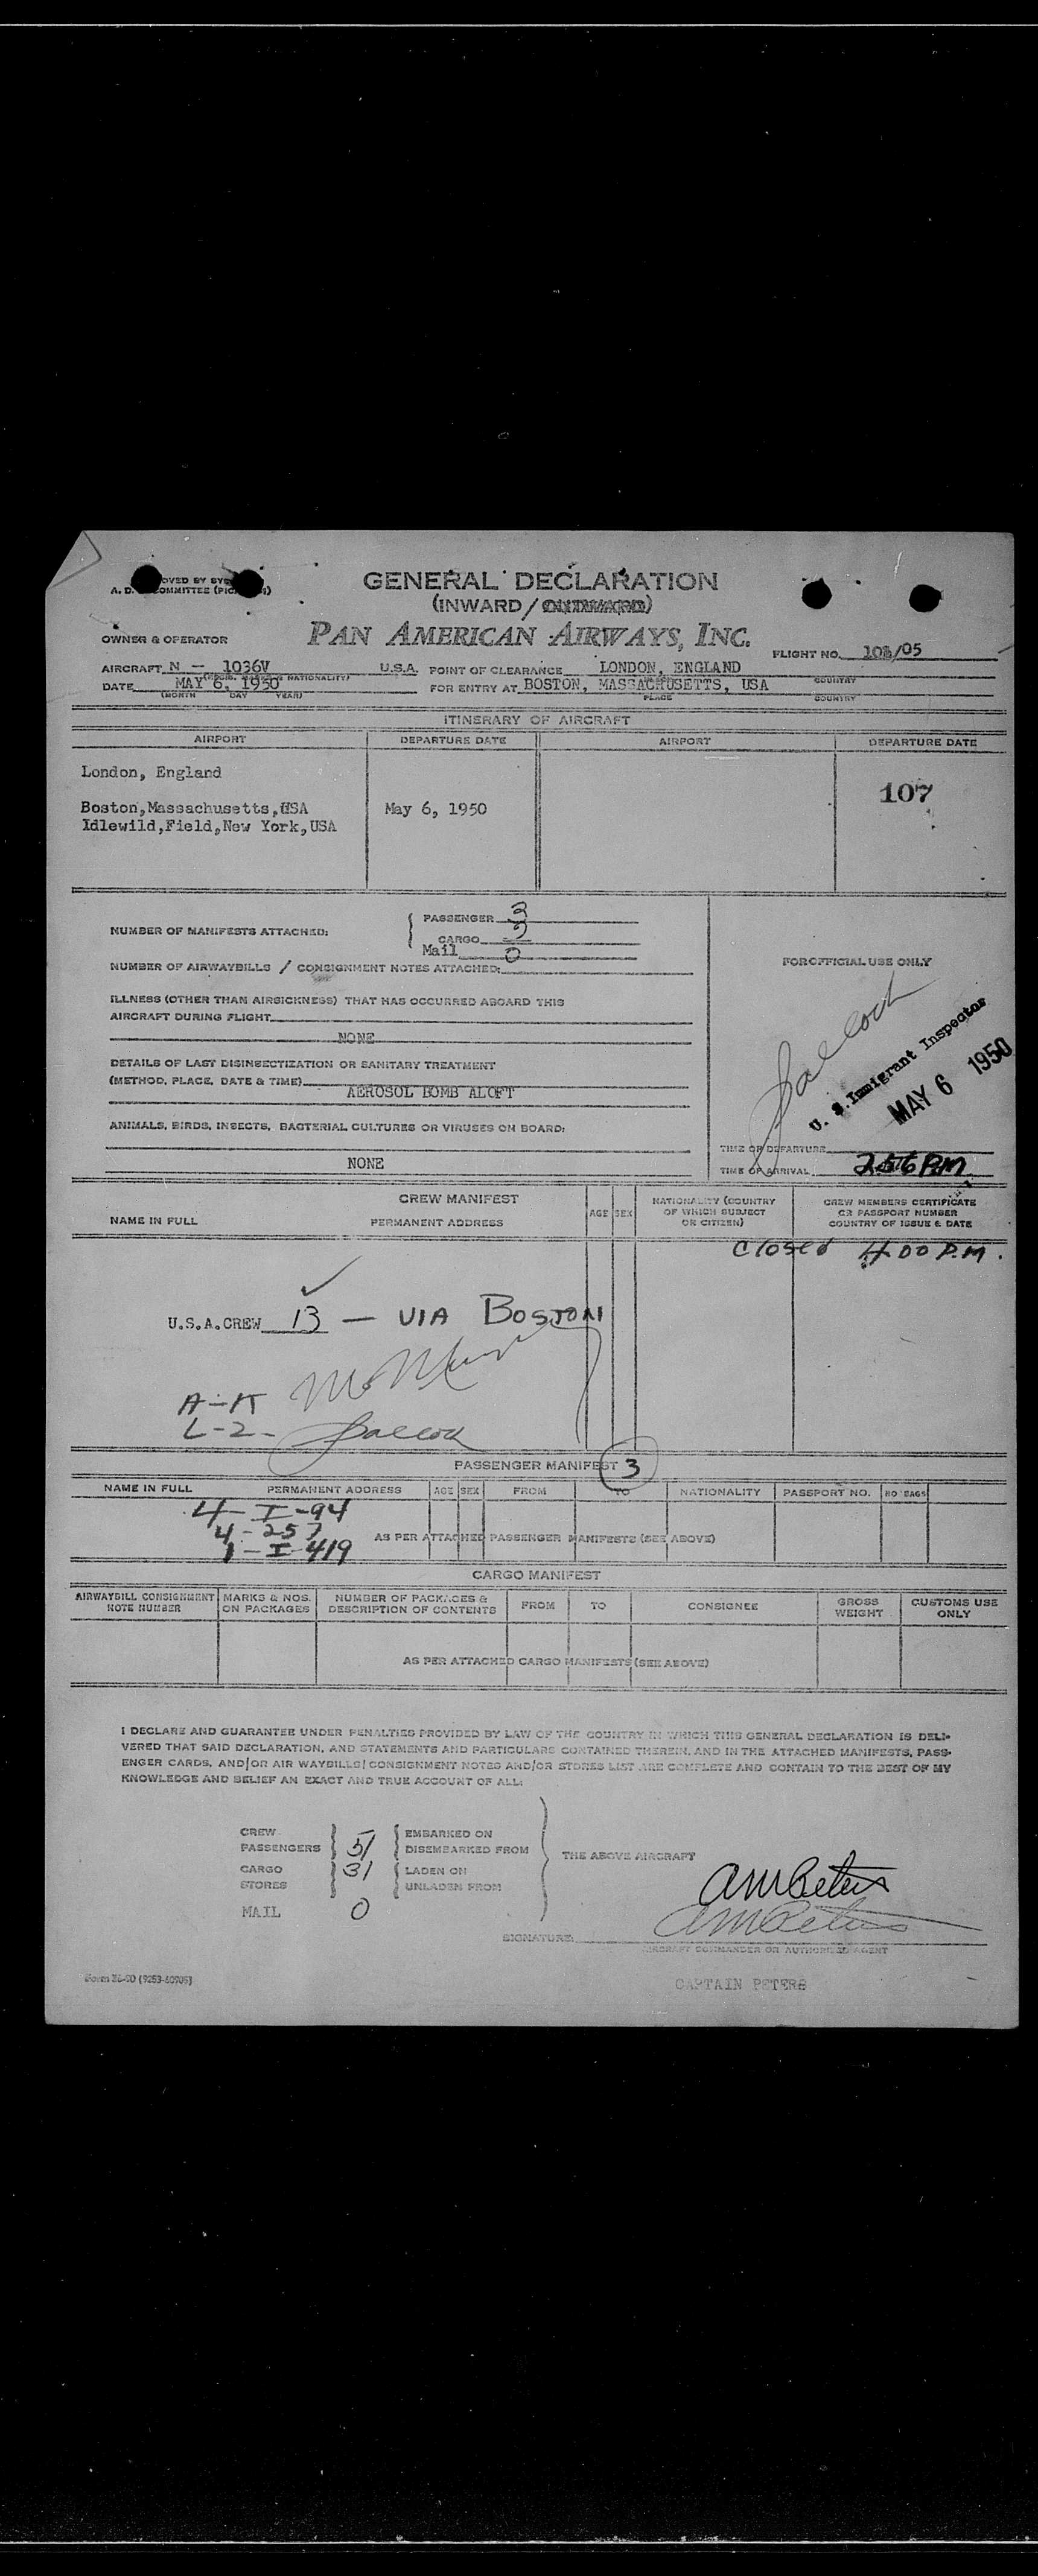 GENERAL DECLARATION
(INWARD/OUTWARD)
OWNER & OPERATOR
PAN AMERICAN AIRWAYS, INC.
FLIGHT NO. /05
AIRCRAFT N - 1036V U.S.A. POINT OF CLEARANCE LONDON, ENGLAND
COUNTRY
DATE MAY 6, 1950 FOR ENTRY AT BOSTON, MASSACHUSETTS, USA
(MONTH DAY YEAR) PLACE COUNTRY
ITINERARY OF AIRCRAFT
AIRPORT DEPARTURE DATE AIRPORT DEPARTURE DATE
London, England
107
Boston,Massachusetts,USA May 6, 1950
Idlewild,Field,New York,USA
NUMBER OF MANIFESTS ATTACHED:
PASSENGER 3
CARGO 3
Mail 0
NUMBER OF AIRWAYBILLS / CONSIGNMENT NOTES ATTACHED:
FOR OFFICIAL USE ONLY
ILLNESS (OTHER THAN AIRSICKNESS) THAT HAS OCCURRED ABOARD THIS
AIRCRAFT DURING FLIGHT
NONE
DETAILS OF LAST DISINSECTIZATION OR SANITARY TREATMENT
(METHOD, PLACE, DATE & TIME)
AEROSOL BOMB ALOFT
U. S. Immigrant Inspector
MAY 6 1950
ANIMALS, BIRDS, INSECTS, BACTERIAL CULTURES OR VIRUSES ON BOARD:
NONE
TIME OF DEPARTURE
TIME OF ARRIVAL 256 PM
CREW MANIFEST
NAME IN FULL PERMANENT ADDRESS AGE SEX NATIONALITY (COUNTRY OF WHICH SUBJECT OR CITIZEN) CREW MEMBERS CERTIFICATE OR PASSPORT NUMBER COUNTRY OF ISSUE & DATE
Closed 4:00 P.M.
U.S.A. CREW 13 — VIA BOSTON
A-K
L-Z
PASSENGER MANIFEST 3
NAME IN FULL PERMANENT ADDRESS AGE SEX FROM TO NATIONALITY PASSPORT NO. NO BAGS
4 - I - 94
4 - 257
1 - I - 419
AS PER ATTACHED PASSENGER MANIFESTS (SEE ABOVE)
CARGO MANIFEST
AIRWAYBILL CONSIGNMENT NOTE NUMBER MARKS & NOS. ON PACKAGES NUMBER OF PACKAGES & DESCRIPTION OF CONTENTS FROM TO CONSIGNEE GROSS WEIGHT CUSTOMS USE ONLY
AS PER ATTACHED CARGO MANIFESTS (SEE ABOVE)
I DECLARE AND GUARANTEE UNDER PENALTIES PROVIDED BY LAW OF THE COUNTRY IN WHICH THIS GENERAL DECLARATION IS DELI-
VERED THAT SAID DECLARATION, AND STATEMENTS AND PARTICULARS CONTAINED THEREIN, AND IN THE ATTACHED MANIFESTS, PASS-
ENGER CARDS, AND/OR AIR WAYBILLS/CONSIGNMENT NOTES AND/OR STORES LIST ARE COMPLETE AND CONTAIN TO THE BEST OF MY
KNOWLEDGE AND BELIEF AN EXACT AND TRUE ACCOUNT OF ALL:
CREW EMBARKED ON
PASSENGERS 51 DISEMBARKED FROM
THE ABOVE AIRCRAFT
CARGO 31 LADEN ON
STORES UNLADEN FROM
MAIL 0
AM Peters
AM Peters
SIGNATURE:
AIRCRAFT COMMANDER OR AUTHORIZED AGENT
CAPTAIN PETERS